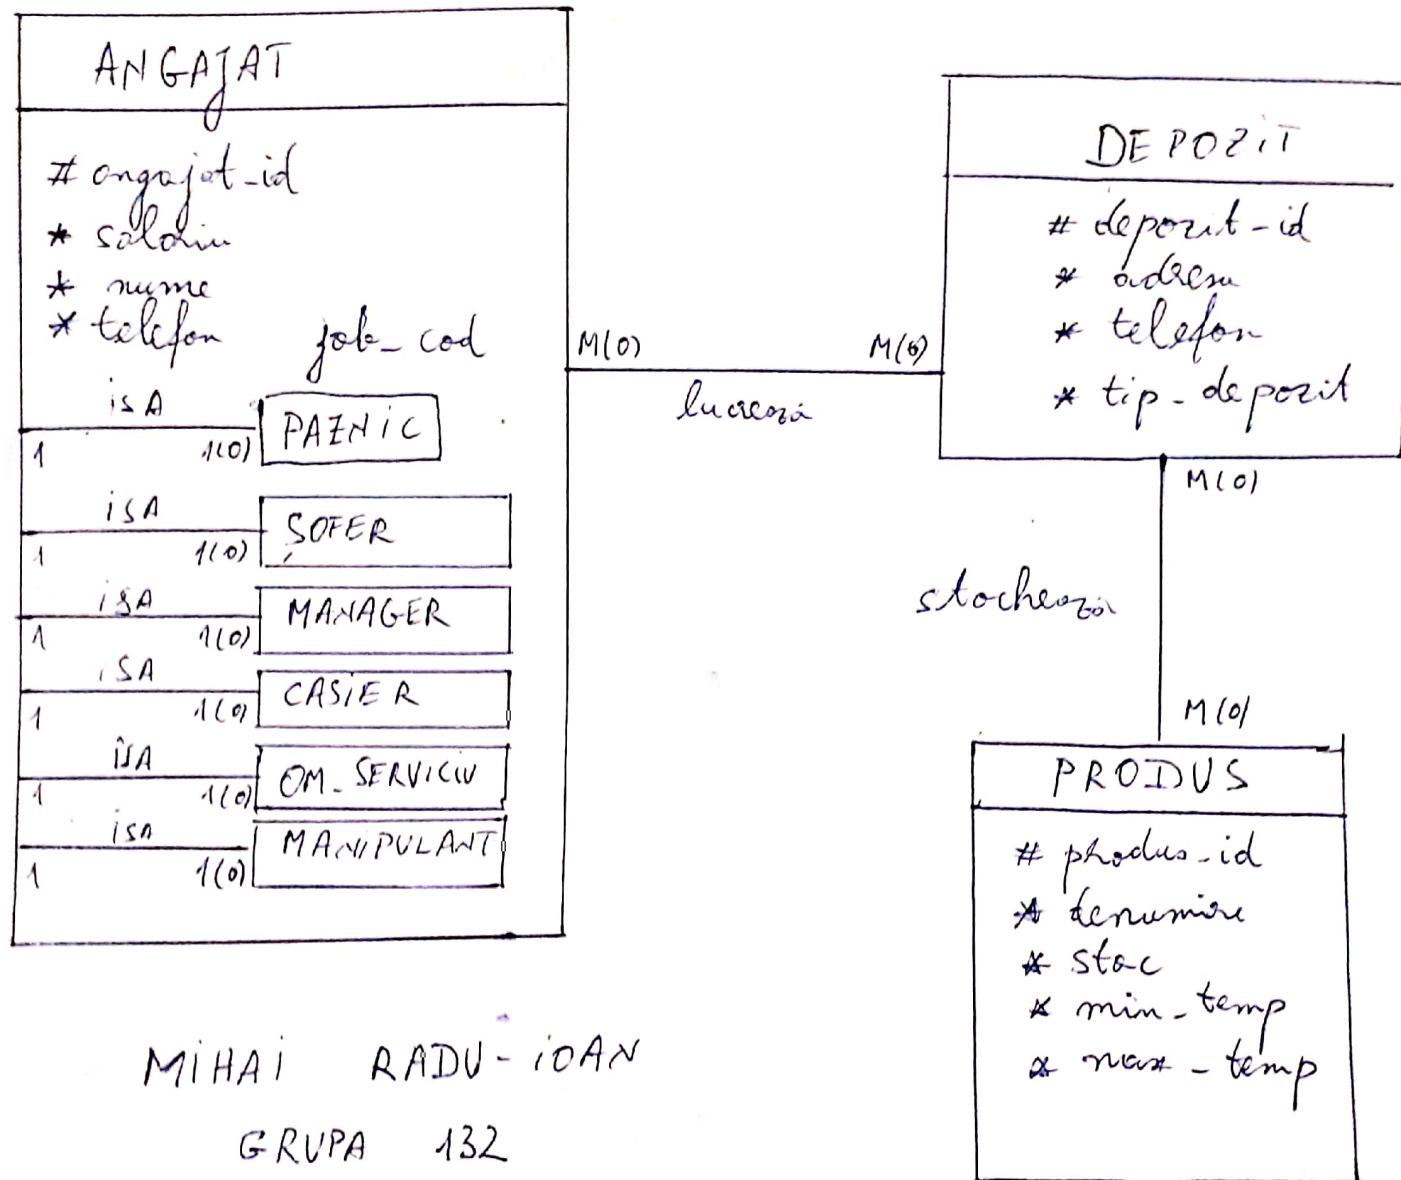 ANGAJAT
# angajat_id
* salariu
* nume
* telefon
job_cod
isA
1
1(0)
PAZNIC
isA
1
1(0)
ȘOFER
isA
1
1(0)
MANAGER
isA
1
1(0)
CASIER
isA
1
1(0)
OM_SERVICIU
isA
1
1(0)
MANIPULANT
M(0)
M(0)
lucrează
DEPOZIT
# depozit-id
* adresa
* telefon
* tip_depozit
M(0)
stochează
M(0)
PRODUS
# produs_id
* denumire
* stoc
* min_temp
* max_temp
MIHAI RADU-IOAN
GRUPA 132